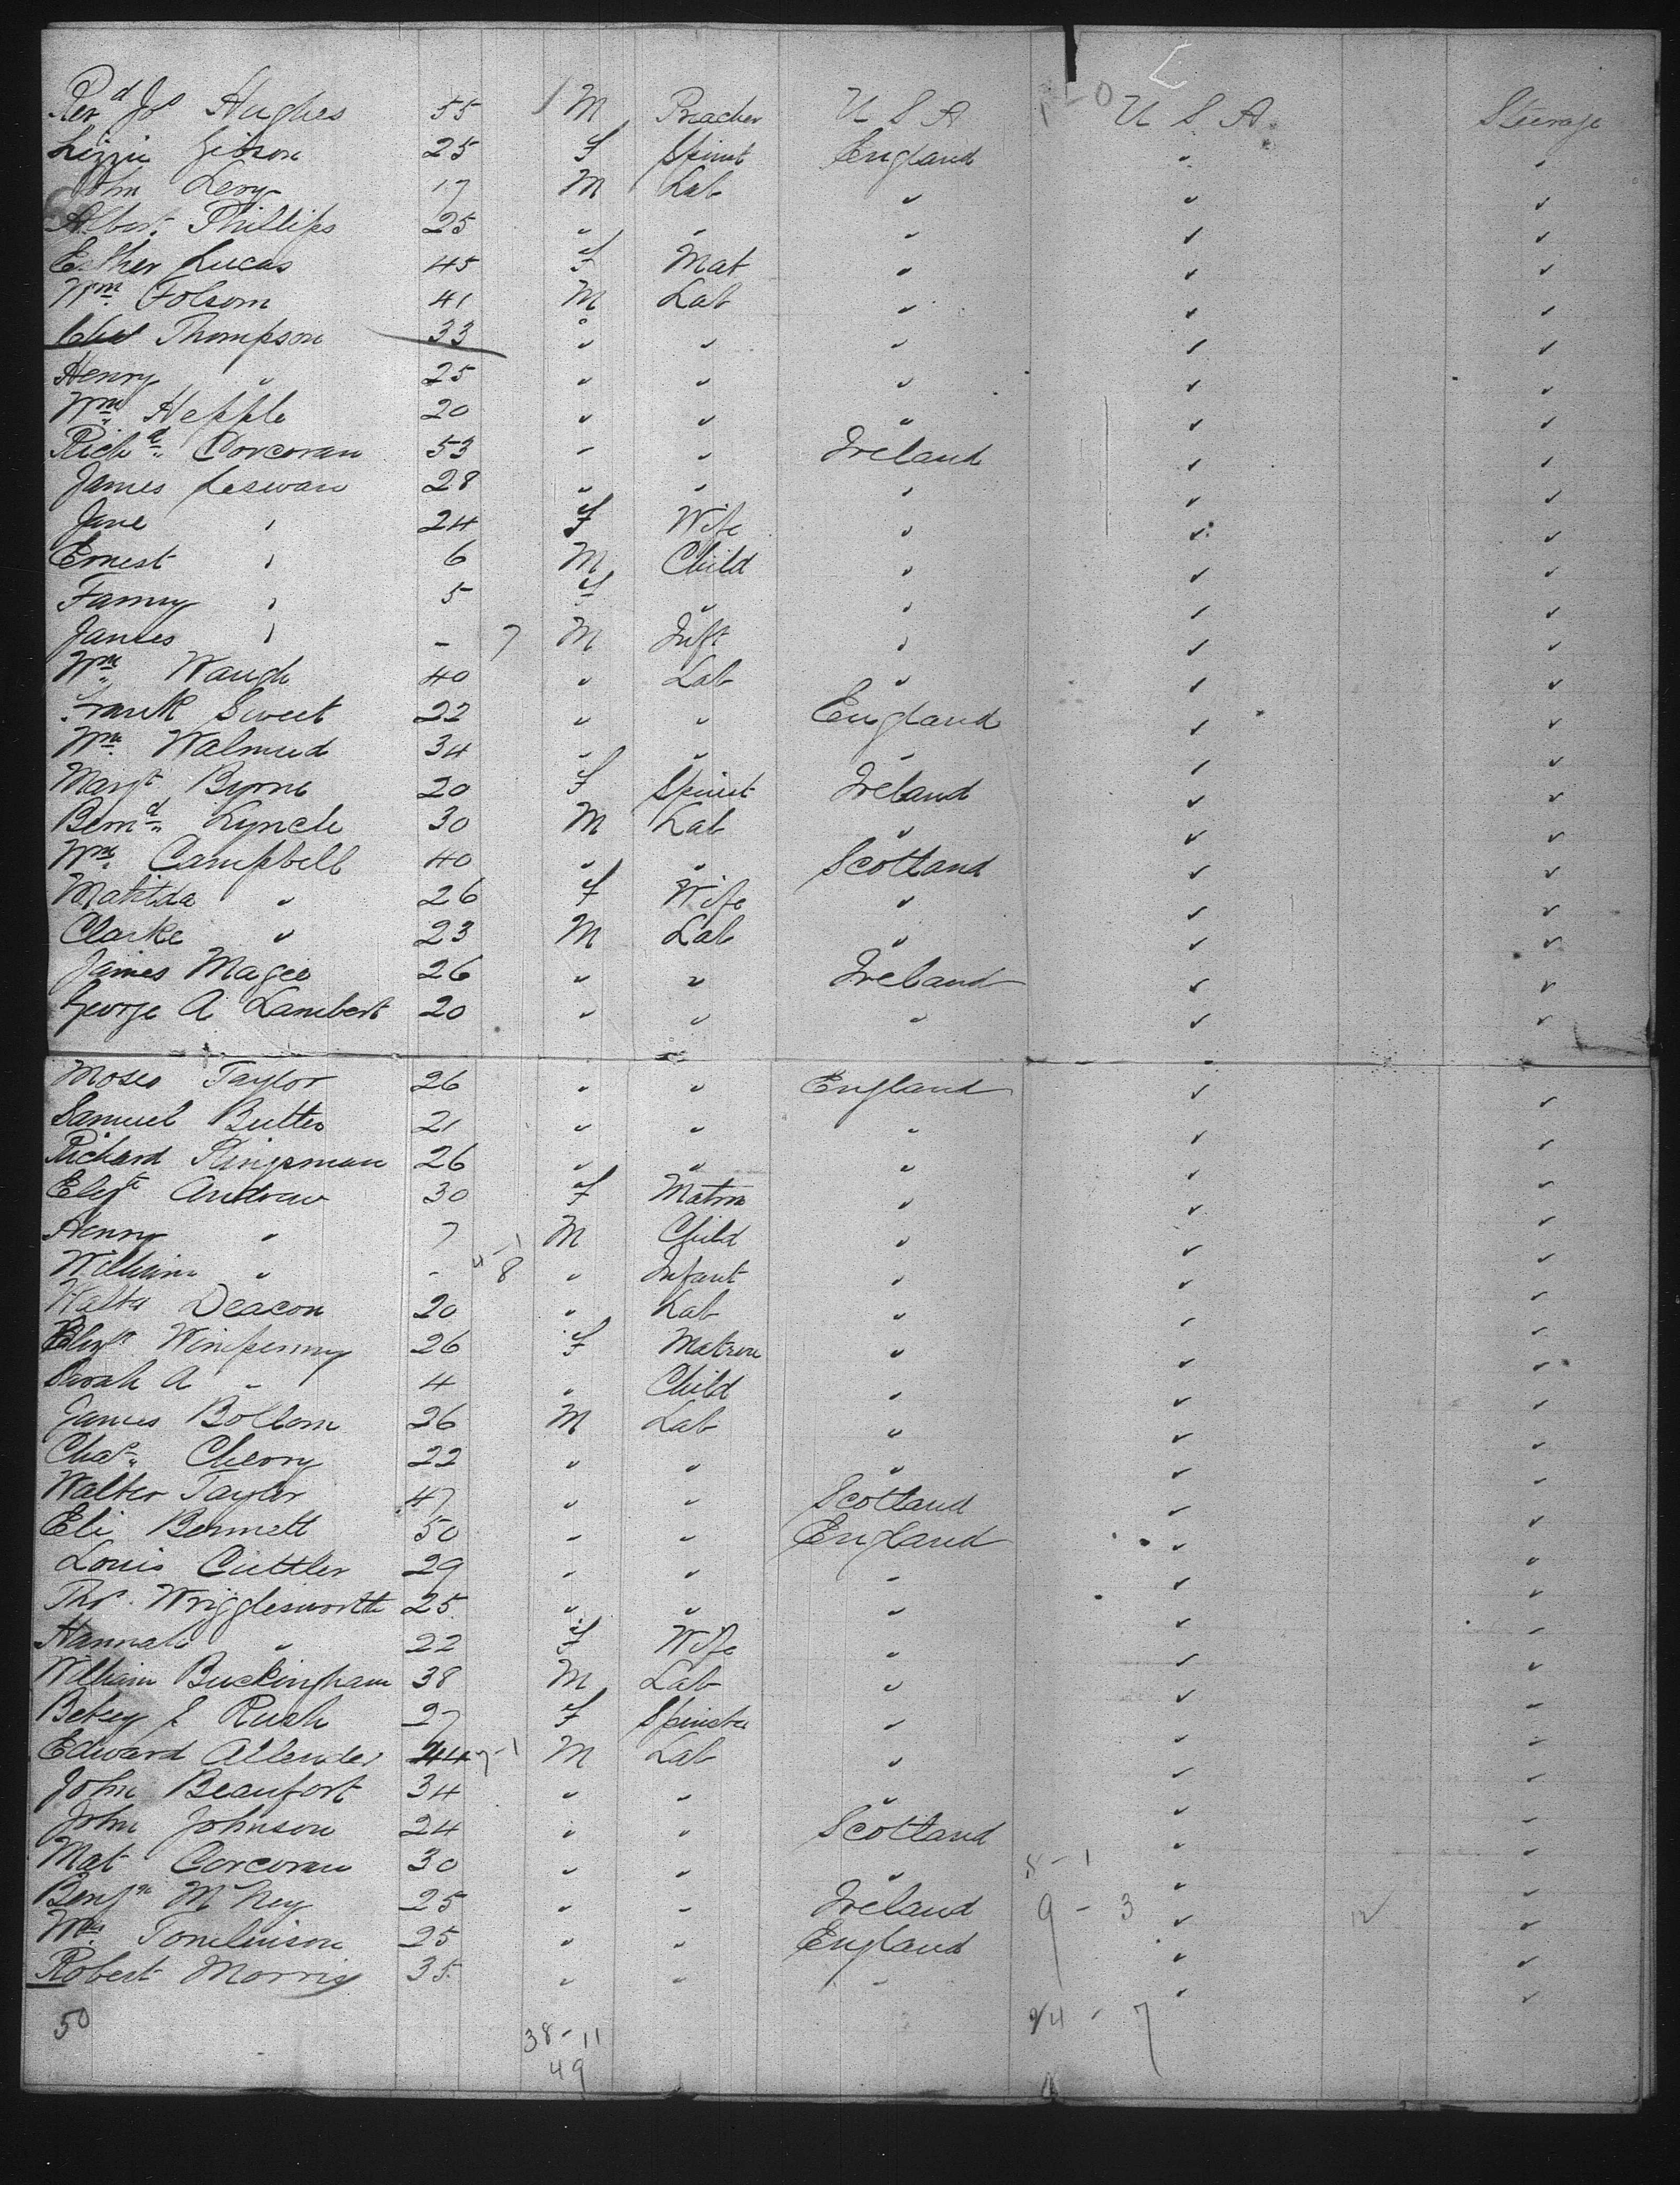 Revd Jos Hughes 55 M Preacher U S A U S A Steerage
Lizzie Gibson 25 F Spinst England " "
John Levy 17 M Lab " " "
Albert Phillips 25 " " " " "
Esther Lucas 45 F Mat " " "
Wm. Folsom 41 M Lab " " "
Thompson 33 " " " " "
Henry " 25 " " " " "
Wm. Hepple 20 " " " " "
Richd. Corcoran 53 " " Ireland " "
James 28 " " " " "
Jane " 24 F Wife " " "
Ernest " 6 M Child " " "
Fanny " 5 F " " " "
James " - 7 M Inft " " "
Wm. Waugh 40 " Lab " " "
Frank Sweet 22 " " England " "
Wm. Walmud 34 " " " " "
Margt Byrne 20 F Spinst Ireland " "
Bernd. Lynch 30 M Lab " " "
Wm. Campbell 40 " " Scotland " "
Matilda " 26 F Wife " " "
Clarke " 23 M Lab " " "
James Magee 26 " " Ireland " "
George A Lambert 20 " " " " "
Moses Taylor 26 " " England " "
Samuel Butler 21 " " " " "
Richard Kingsman 26 " " " " "
Elizt Andrew 30 F Matron " " "
Henry " 7 M Child " " "
William " - 8 " Infant " " "
Walter Deacon 20 " Lab " " "
Elizt Wimpenny 26 F Matron " " "
Sarah A " 4 " Child " " "
James Bollom 26 M Lab " " "
Chas. Cherry 22 " " " " "
Walter Taylor 47 " " Scotland " "
Eli Bennett 50 " " England " "
Louis Cuttler 29 " " " " "
Thos. Wrigglesworth 25 " " " " "
Hannah " 22 F Wife " " "
William Buckingham 38 M Lab " " "
Betsy J Rush 27 F Spinster " " "
Edward Allender 44 M Lab " " "
John Beaufort 34 " " " " "
John Johnson 24 " " Scotland " "
Mat Corcoran 30 " " " 8 - 1 " "
Benjn McNey 25 " " Ireland 9 - 3 " 12 "
Wm. Tomlinson 25 " " England " "
Robert Morris 35 " " " " "
50 38 - 11 24 - 7
49